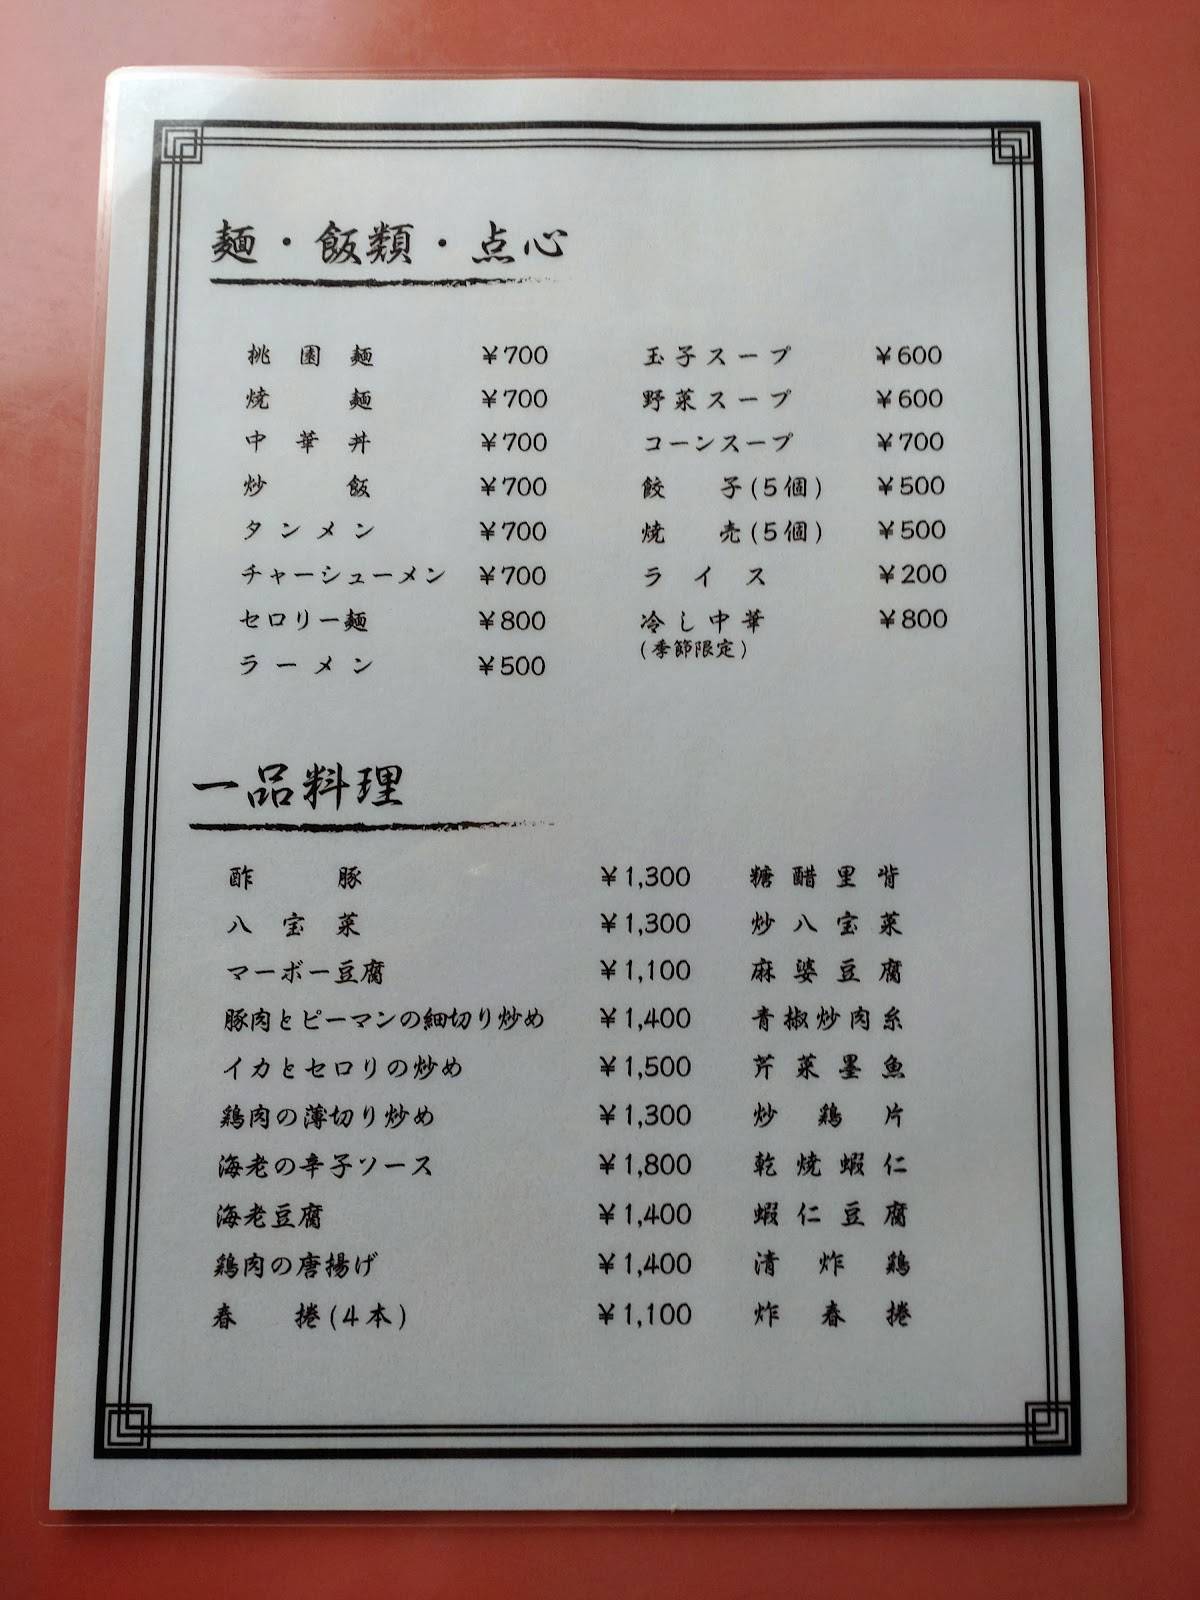 麺・飯類・点心
桃園麺 ¥700
焼麺 ¥700
中華丼 ¥700
炒飯 ¥700
タンメン ¥700
チャーシューメン ¥700
セロリー麺 ¥800
ラーメン ¥500
玉子スープ ¥600
野菜スープ ¥600
コーンスープ ¥700
餃子(5個) ¥500
焼売(5個) ¥500
ライス ¥200
冷し中華 ¥800
(季節限定)
一品料理
酢豚 ¥1,300 糖醋里背
八宝菜 ¥1,300 炒八宝菜
マーボー豆腐 ¥1,100 麻婆豆腐
豚肉とピーマンの細切り炒め ¥1,400 青椒炒肉糸
イカとセロリの炒め ¥1,500 芹菜墨魚
鶏肉の薄切り炒め ¥1,300 炒鶏片
海老の辛子ソース ¥1,800 乾焼蝦仁
海老豆腐 ¥1,400 蝦仁豆腐
鶏肉の唐揚げ ¥1,400 清炸鶏
春捲(4本) ¥1,100 炸春捲